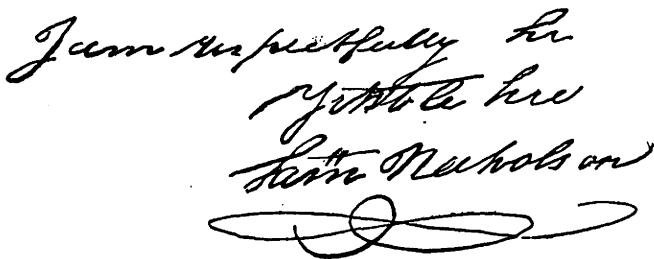 I am respectfully Sir
Yr Obt Sve
Sam Nicholson